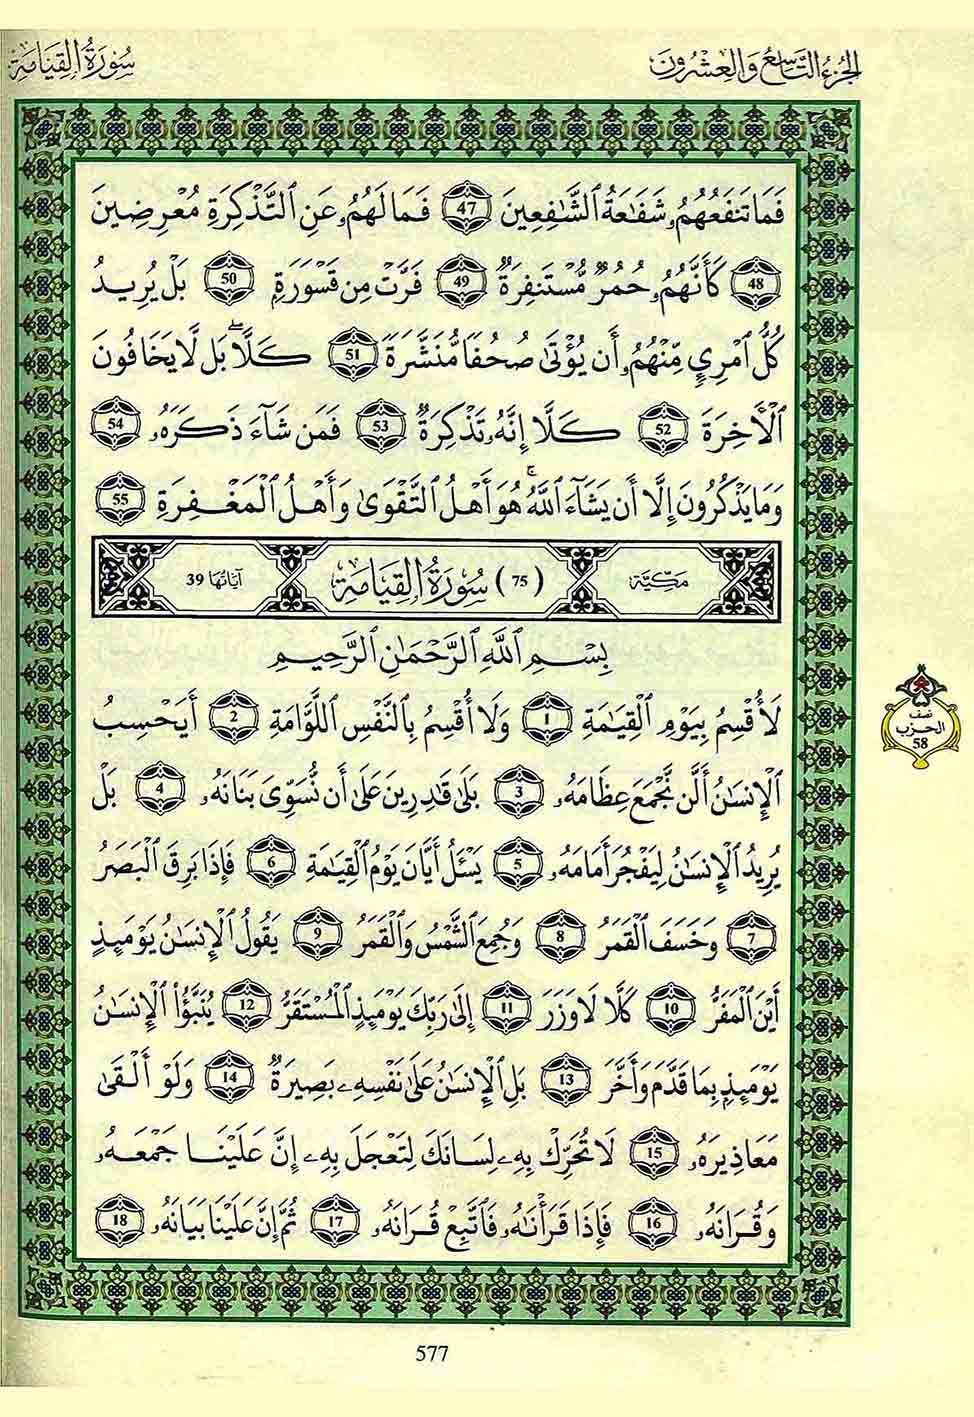 الجُزْءُ التَّاسِعُ وَالعِشْرُونَ سُورَةُ القِيَامَةِ
فَمَا تَنفَعُهُمُۥ شَفَٰعَةُ ٱلشَّٰفِعِينَ 47 فَمَا لَهُمُۥ عَنِ ٱلتَّذْكِرَةِ مُعْرِضِينَ
48 كَأَنَّهُمُۥ حُمُرٌ مُّسْتَنفِرَةٌ 49 فَرَّتْ مِن قَسْوَرَةٍ 50 بَلْ يُرِيدُ
كُلُّ ٱمْرِيٍٕ مِّنْهُمُۥ أَن يُؤْتَىٰ صُحُفًا مُّنَشَّرَةً 51 كَلَّاۖ بَل لَّا يَخَافُونَ
ٱلْأَخِرَةَ 52 كَلَّا إِنَّهُۥ تَذْكِرَةٌ 53 فَمَن شَآءَ ذَكَرَهُۥ 54
وَمَا يَذْكُرُونَ إِلَّا أَن يَشَآءَ ٱللَّهُۚ هُوَ أَهْلُ ٱلتَّقْوَىٰ وَأَهْلُ ٱلْمَغْفِرَةِ 55
مَكِّيَّة (75) سُورَةُ القِيَامَةِ آيَاتُهَا 39
بِسْمِ ٱللَّهِ ٱلرَّحْمَٰنِ ٱلرَّحِيمِ
لَأُقْسِمُ بِيَوْمِ ٱلْقِيَٰمَةِ 1 وَلَا أُقْسِمُ بِٱلنَّفْسِ ٱللَّوَّامَةِ 2 أَيَحْسِبُ
نصف الحزب 58
ٱلْإِنسَٰنُ أَلَّن نَّجْمَعَ عِظَامَهُۥ 3 بَلَىٰ قَٰدِرِينَ عَلَىٰ أَن نُّسَوِّىَ بَنَانَهُۥ 4 بَلْ
يُرِيدُ ٱلْإِنسَٰنُ لِيَفْجُرَ أَمَامَهُۥ 5 يَسْـَٔلُ أَيَّانَ يَوْمُ ٱلْقِيَٰمَةِ 6 فَإِذَا بَرِقَ ٱلْبَصَرُ
7 وَخَسَفَ ٱلْقَمَرُ 8 وَجُمِعَ ٱلشَّمْسُ وَٱلْقَمَرُ 9 يَقُولُ ٱلْإِنسَٰنُ يَوْمَئِذٍ
أَيْنَ ٱلْمَفَرُّ 10 كَلَّا لَا وَزَرَ 11 إِلَىٰ رَبِّكَ يَوْمَئِذٍ ٱلْمُسْتَقَرُّ 12 يُنَبَّؤُاْ ٱلْإِنسَٰنُ
يَوْمَئِذٍ بِمَا قَدَّمَ وَأَخَّرَ 13 بَلِ ٱلْإِنسَٰنُ عَلَىٰ نَفْسِهِۦ بَصِيرَةٌ 14 وَلَوْ أَلْقَىٰ
مَعَاذِيرَهُۥ 15 لَا تُحَرِّكْ بِهِۦ لِسَانَكَ لِتَعْجَلَ بِهِۦ إِنَّ عَلَيْنَا جَمْعَهُۥ
وَقُرَانَهُۥ 16 فَإِذَا قَرَأْنَٰهُۥ فَٱتَّبِعْ قُرَانَهُۥ 17 ثُمَّ إِنَّ عَلَيْنَا بَيَانَهُۥ 18
577